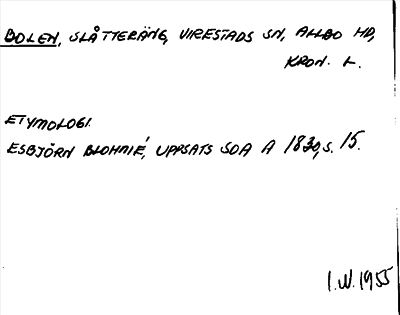 BOLEN, SLÅTTERÄNG, VIRESTADS SN, ALLBO HD,
KRON. L.
ETYMOLOGI.
ESBJÖRN BLOHMÉ, UPPSATS SOA A 1830, S. 15.
I.W. 1955